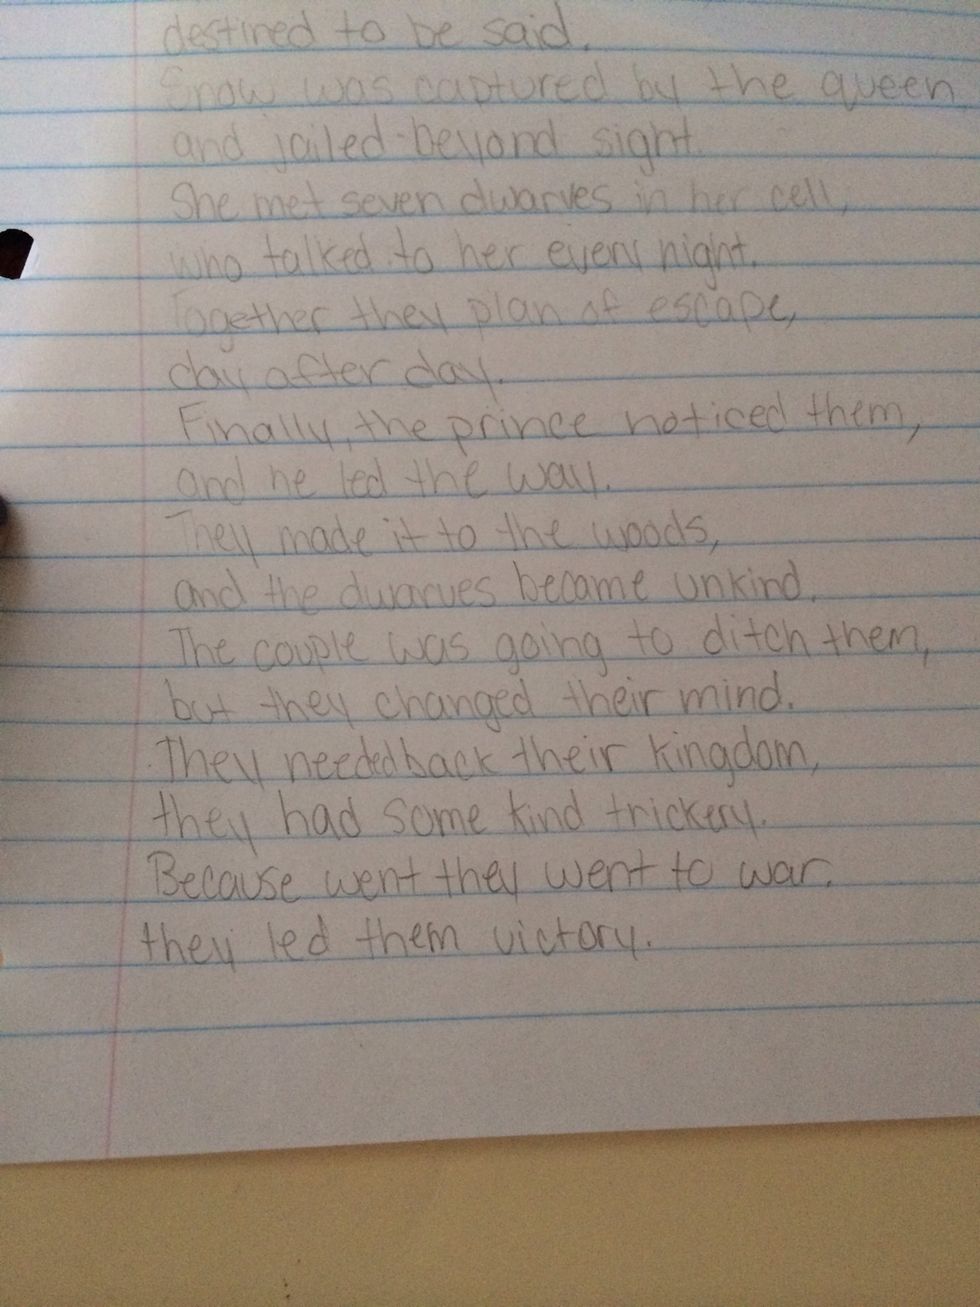 destined to be said.
Snow was captured by the queen
and jailed beyond sight.
She met seven dwarves in her cell,
who talked to her every night.
Together they plan of escape,
day after day.
Finally, the prince noticed them,
and he led the way.
They made it to the woods,
and the dwarves became unkind.
The couple was going to ditch them,
but they changed their mind.
They needed back their kingdom,
they had some kind trickery.
Because went they went to war.
they led them victory.